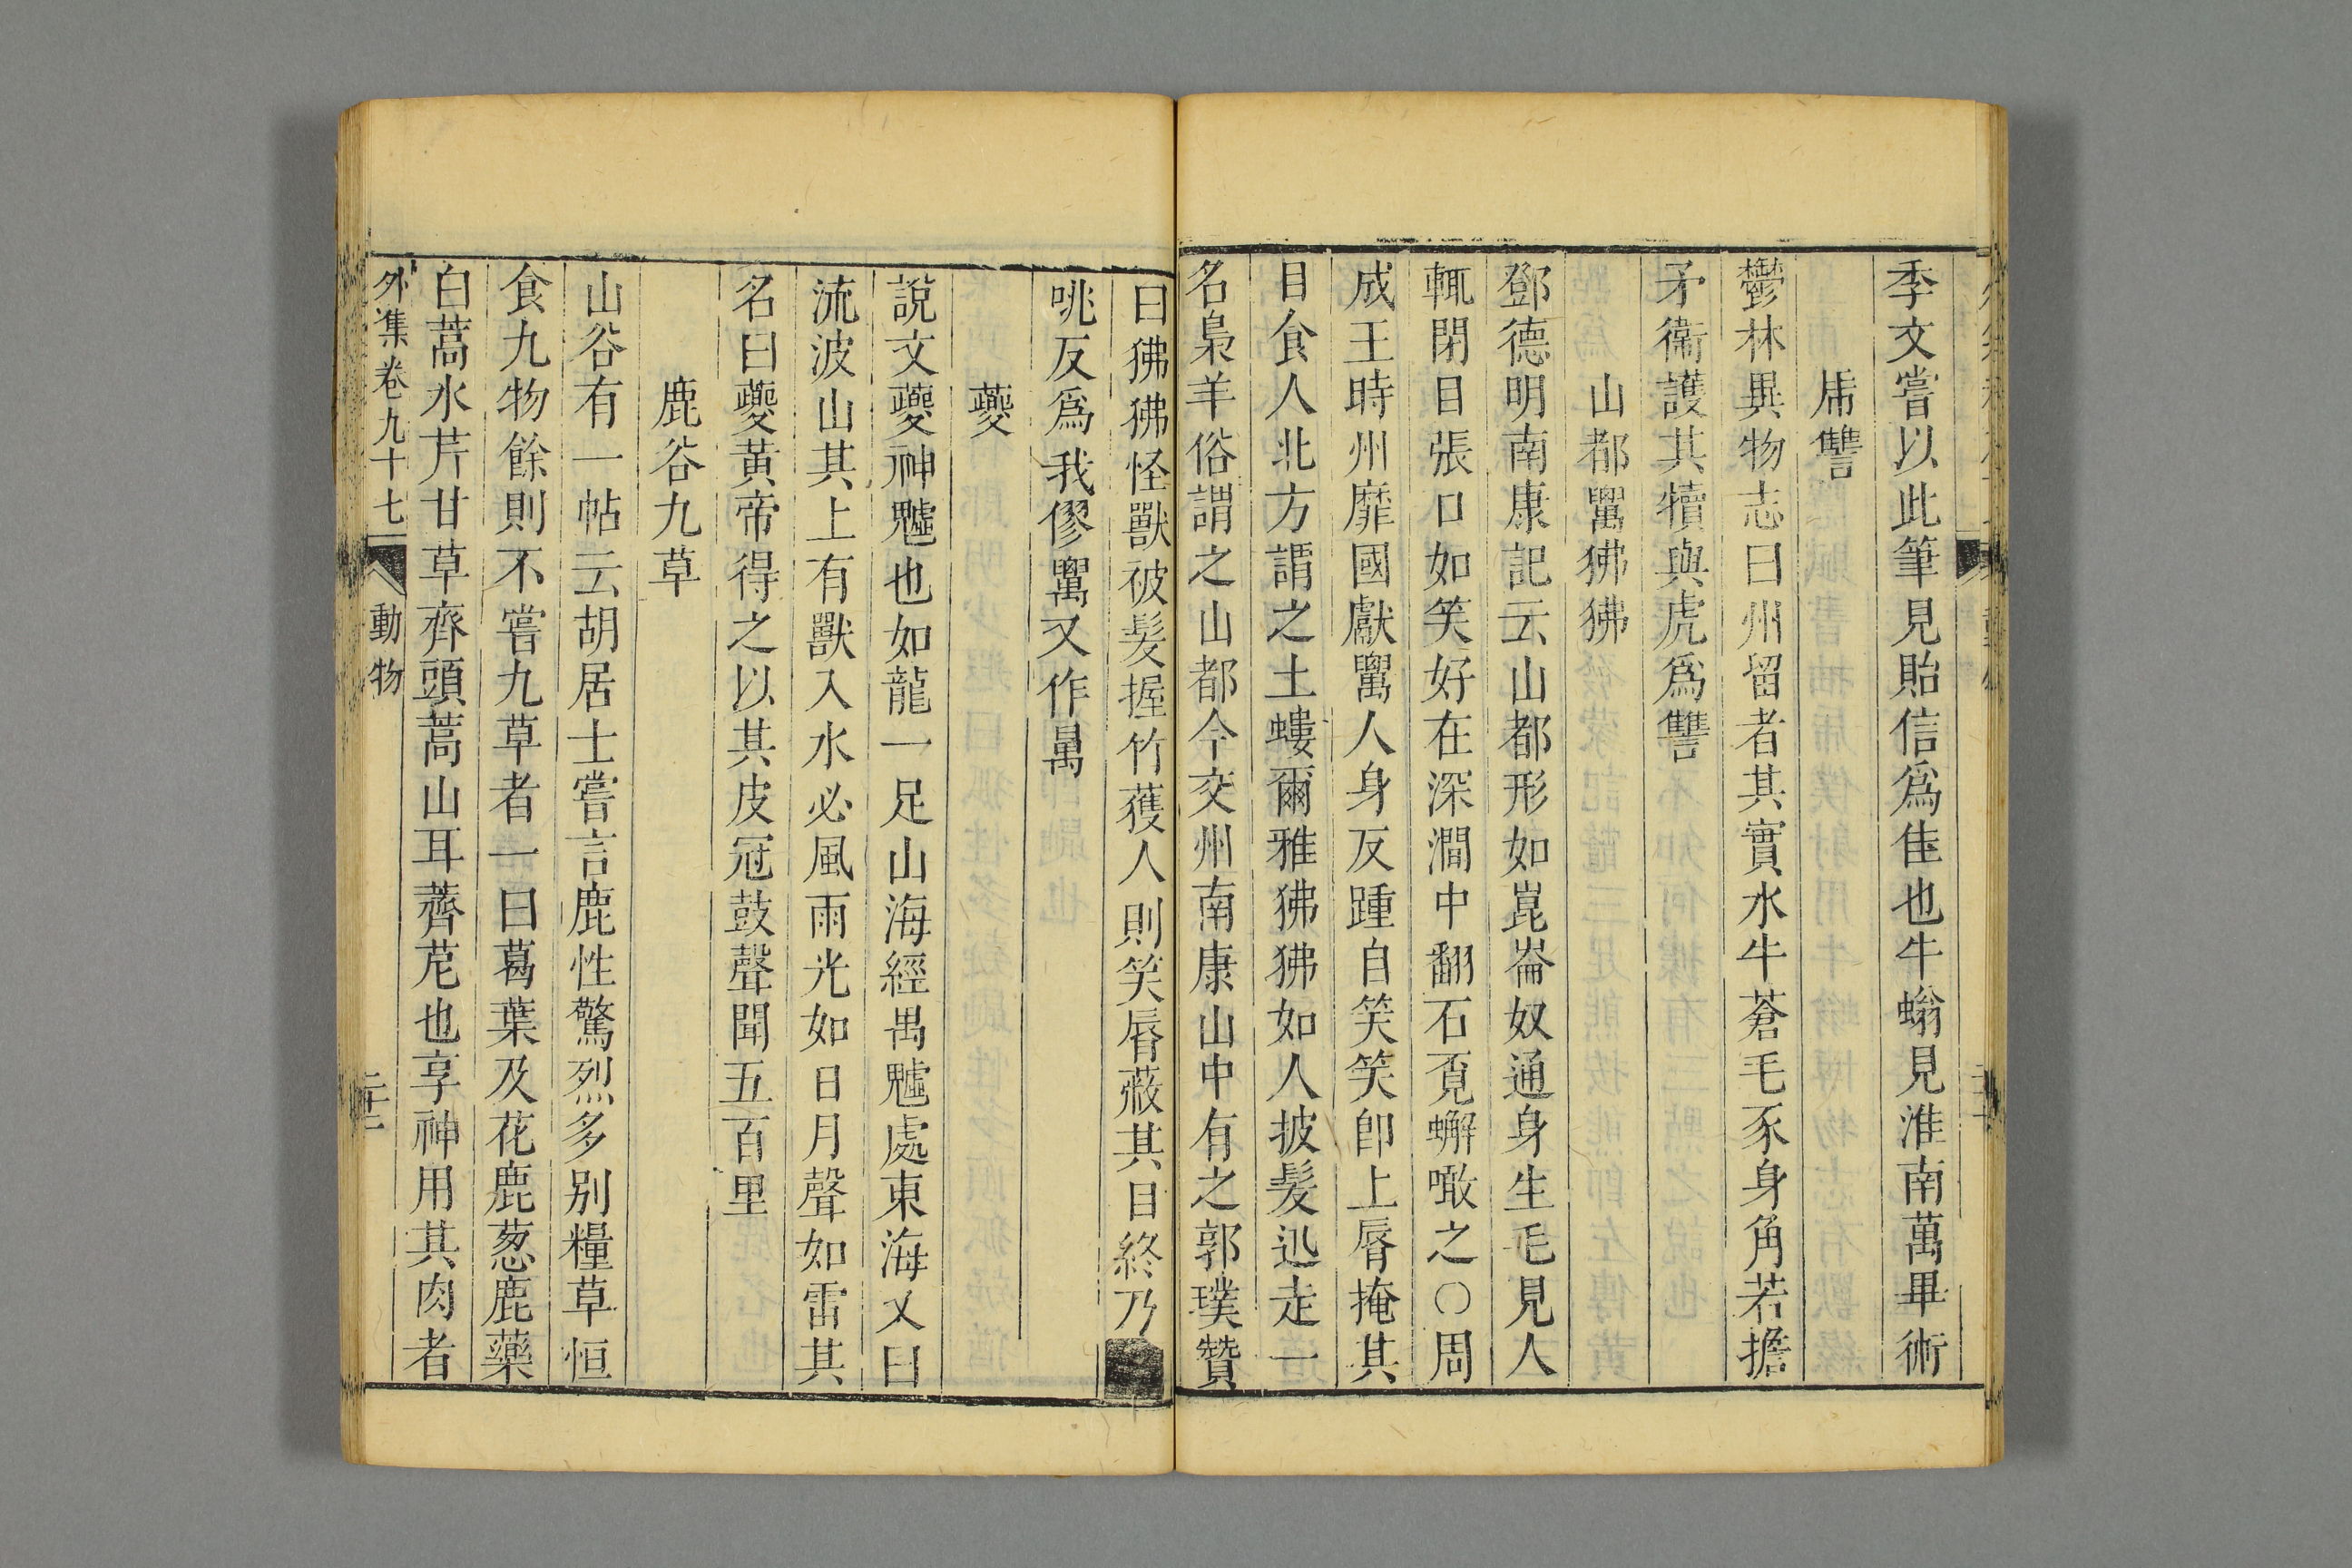 季文嘗以此筆見貽信爲佳也牛螉見淮南萬畢術
虎讐
鬱林異物志曰州留者其實水牛蒼毛豕身角若擔
矛衞護其犢與虎爲讐
山都䦧狒狒
鄧德明南康記云山都形如崑崙奴通身生毛見人
輒閉目張口如笑好在深澗中翻石覓蠏噉之○周
成王時州靡國獻䦧人身反踵自笑笑卽上脣掩其
目食人北方謂之土螻爾雅狒狒如人披髮迅走一
名梟羊俗謂之山都今交州南康山中有之郭璞贊
曰狒狒怪獸被髮握竹獲人則笑脣蔽其目終乃
咷反爲我僇䦧又作
夔
說文夔神魖也如龍一足山海經禺魖處東海又曰
流波山其上有獸入水必風雨光如日月聲如雷其
名曰夔黃帝得之以其皮冠鼓聲聞五百里
鹿谷九草
山谷有一帖云胡居士嘗言鹿性驚烈多別糧草恒
食九物餘則不嘗九草者一曰葛葉及花鹿葱鹿藥
白蒿水芹甘草齊頭蒿山耳薺苨也享神用其肉者
外集卷九十七 動物